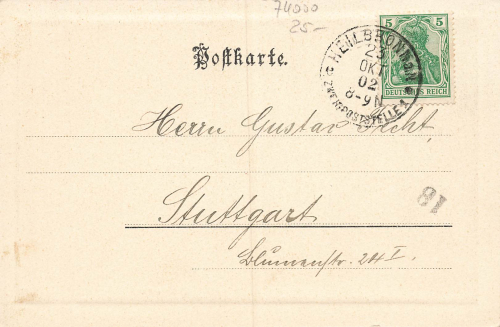 74000
25-
5 5
DEUTSCHES REICH
HEILBRONN
23
OKT
02
8-9N
Postkarte.
Herrn Gustav
Stuttgart
Blumenstr. 24 I.
18